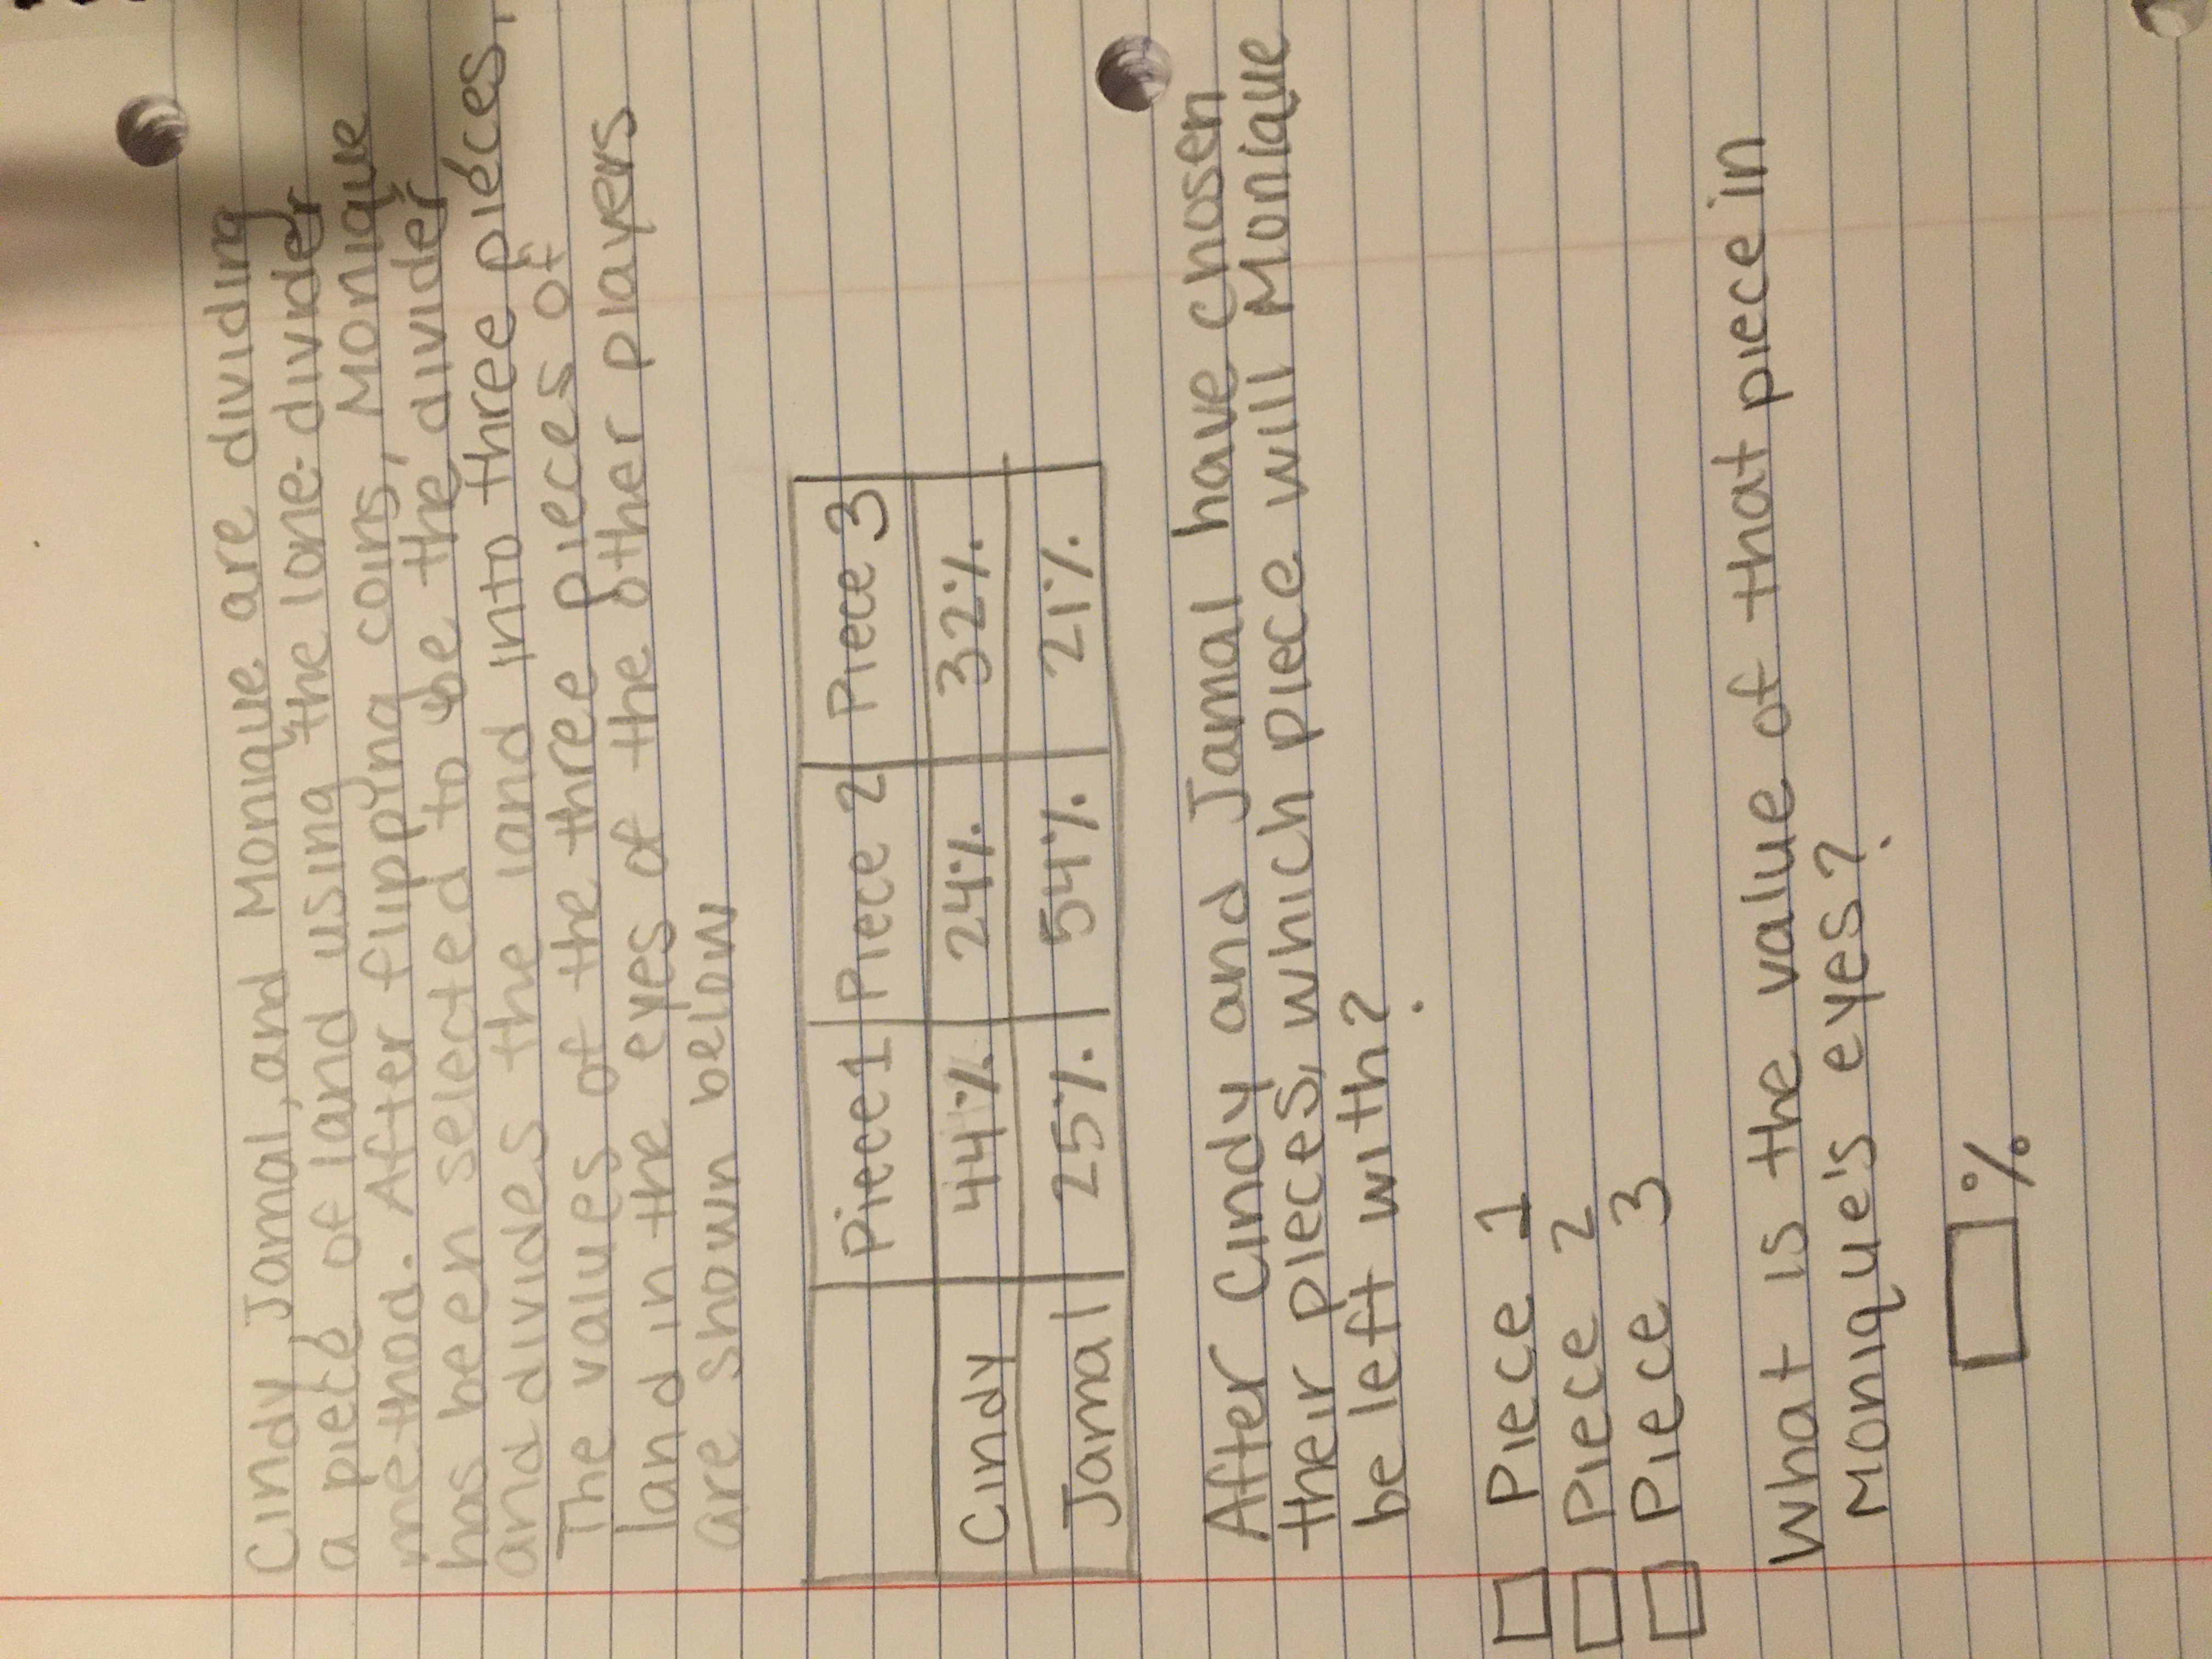 Cindy, Jamal, and Monique are dividing
a piece of land using the lone-divider
method. After flipping coins, Monique
has been selected to be the divider
and divides the land into three pieces.
The values of the three pieces of
land in the eyes of the other players
are shown below
Piece 1 Piece 2 Piece 3
Cindy 44% 24% 32%
Jamal 25% 54% 21%
After Cindy and Jamal have chosen
their pieces, which piece will Monique
be left with?
Piece 1
Piece 2
Piece 3
What is the value of that piece in
Monique's eyes?
%